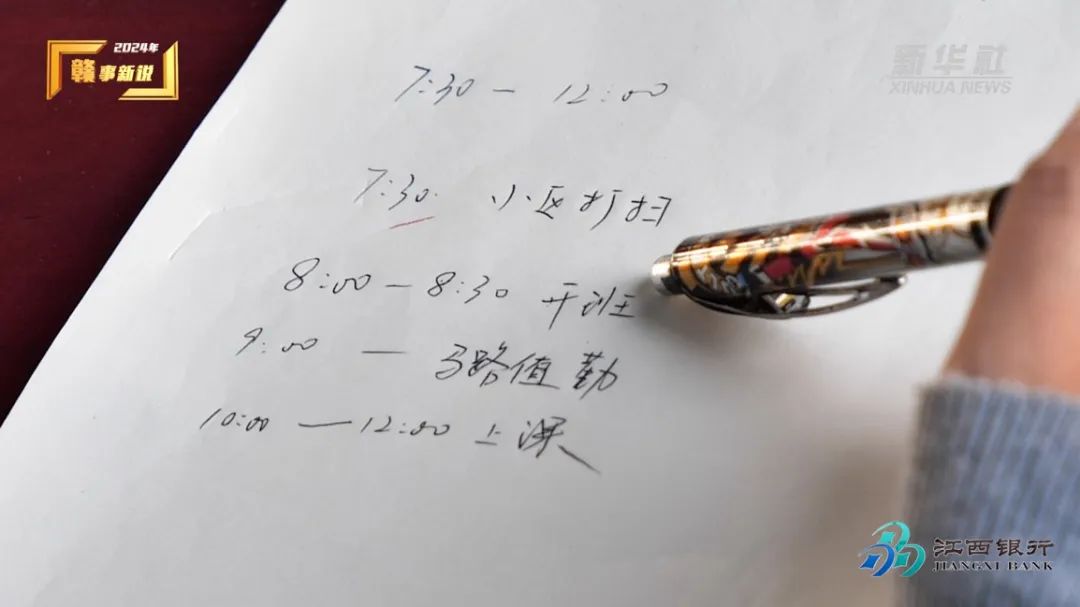 2024年
赣事新说
新华社
XINHUA NEWS
7:30 — 12:00
7:30 小区打扫
8:00 — 8:30 开班
9:00 — 马路值勤
10:00 — 12:00 上课
江西银行
JIANGXI BANK